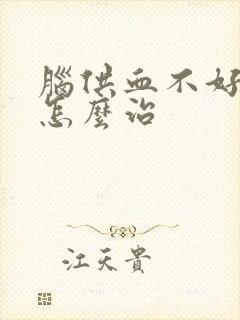 腦供血不好
怎麼治
江天貴